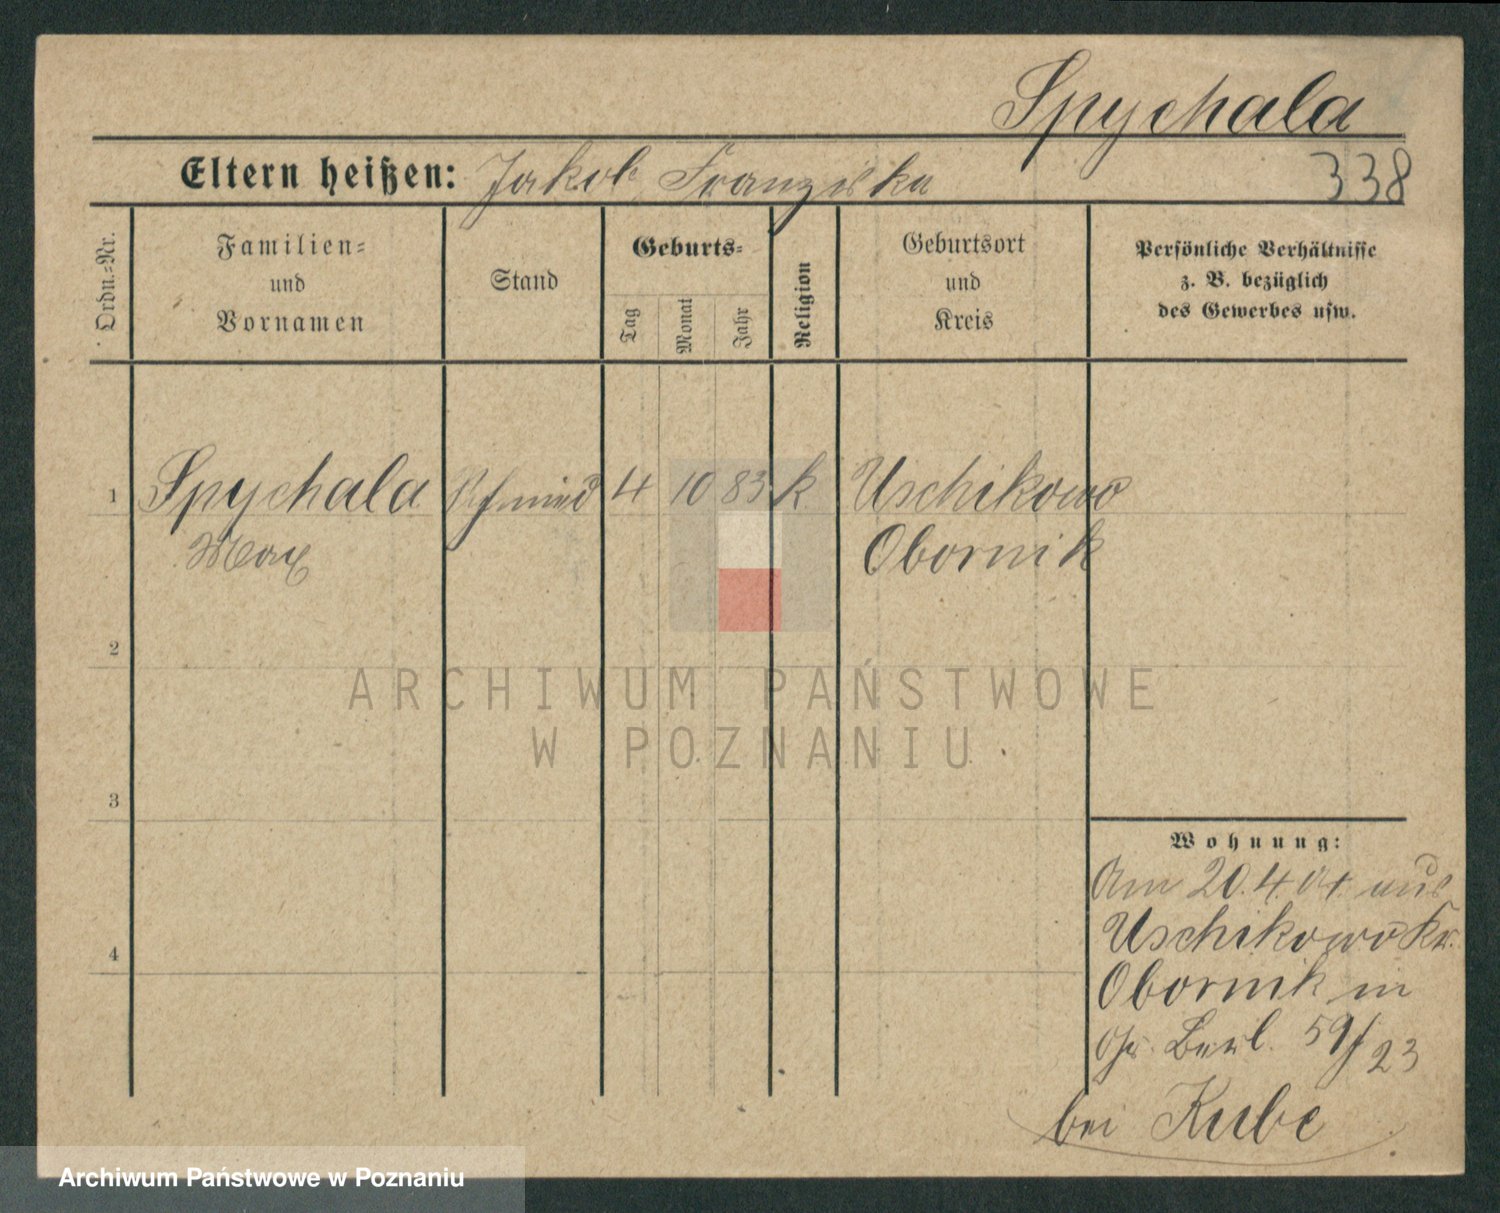 Spychala
Eltern heißen: Jakob Franziska 338
Ordn.=Nr.
Familien= und Vornamen
Stand
Geburts=
Tag
Monat
Jahr
Religion
Geburtsort und Kreis
Persönliche Verhältnisse
z. B. bezüglich
des Gewerbes usw.
1 Spychala Schmied 4 10 83 k Uschikowo
Max Obornik
2
3
4
Wohnung:
Am 20.4.04. aus
Uschikowo Kr.
Obornik in
Gr. Berl. 59/23
bei Kube
ARCHIWUM PAŃSTWOWE
W POZNANIU
Archiwum Państwowe w Poznaniu